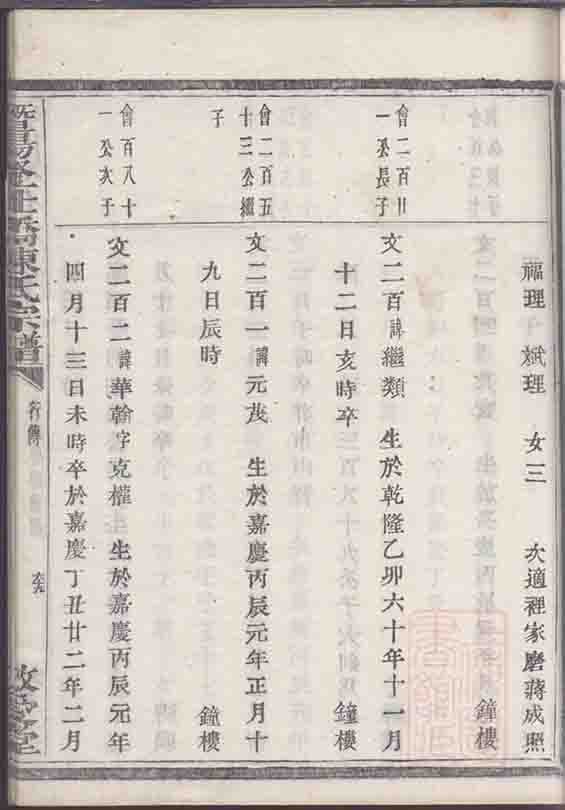 福理 斌理 女三 次適裡家磨蔣成照 鐘樓
會二百廿
一公長子
文二百諱繼類 生於乾隆乙卯六十年十一月
十二日亥時卒 鐘樓
會二百五
十三公繼
子
文二百一諱元茂 生於嘉慶丙辰元年正月十
九日辰時 鐘樓
會百八十
一公次子
文二百二諱華幹字克權 生於嘉慶丙辰元年
四月十三日未時卒於嘉慶丁丑廿二年二月
暨陽 橋陳氏宗譜
行傳
堂